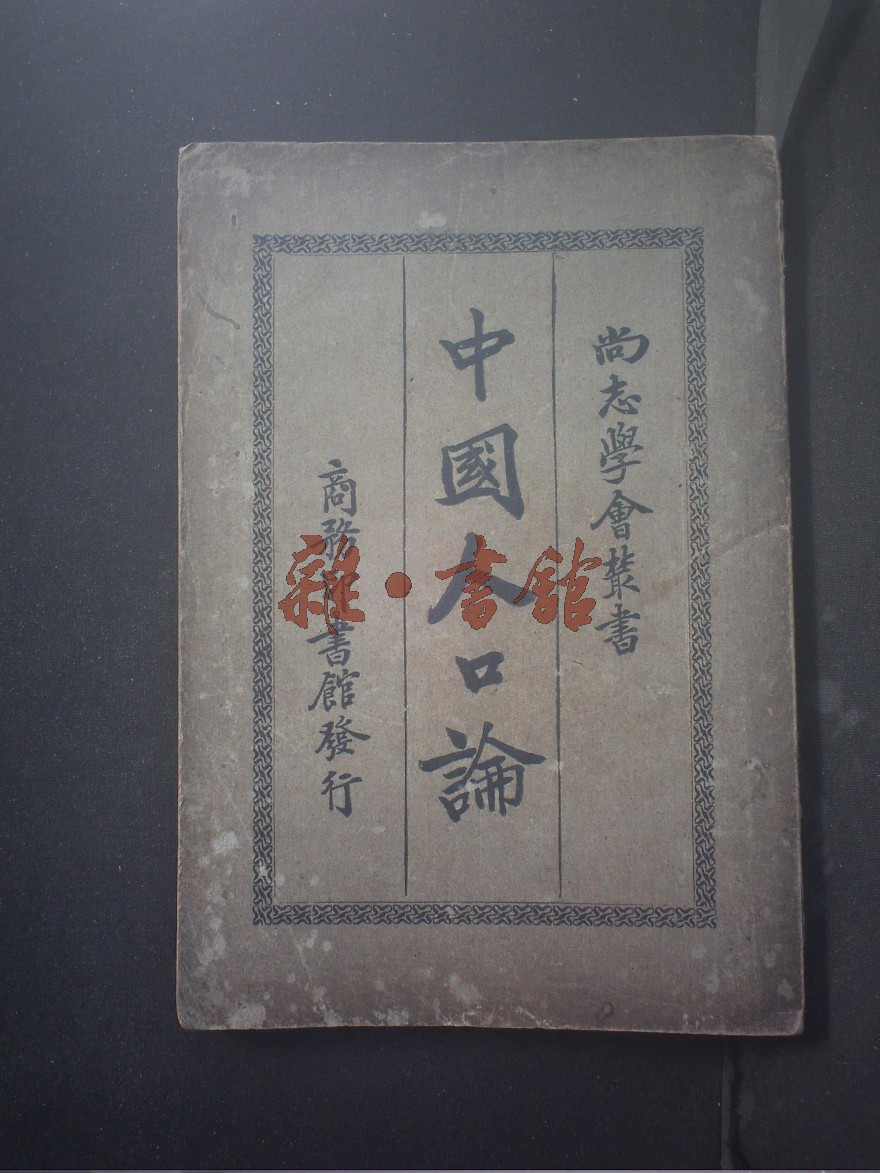 尚志學會叢書
中國人口論
商務印書館發行
雜·書館